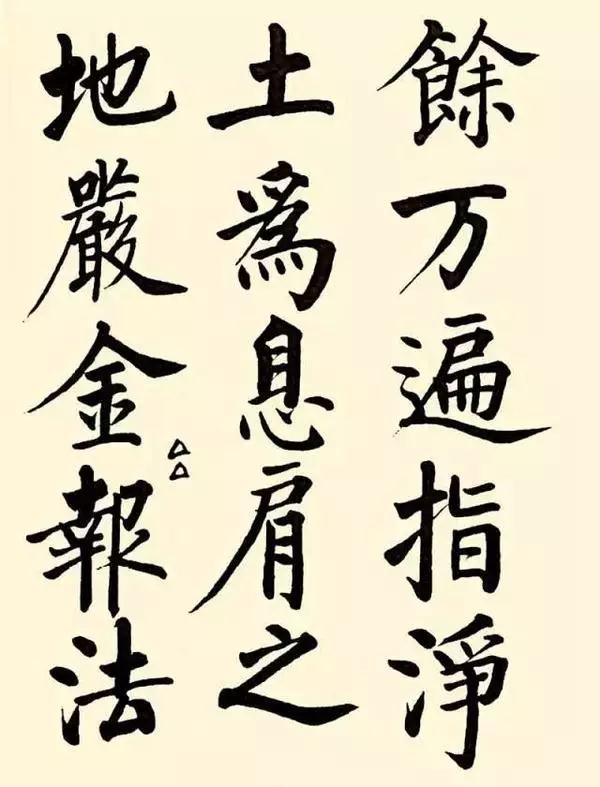 餘万遍指淨
土為息肩之
地嚴金報法